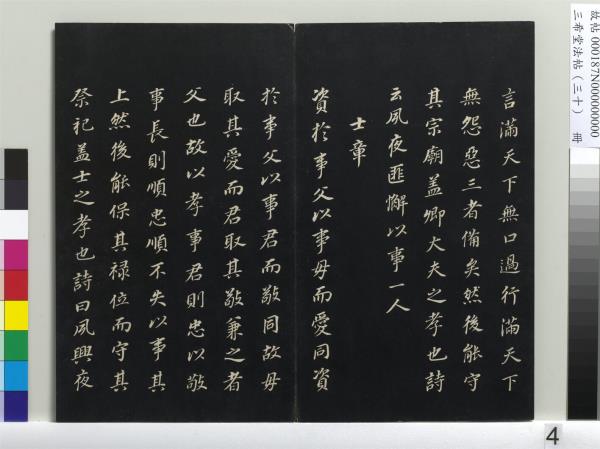 言滿天下無口過行滿天下
無怨惡三者備矣然後能守
其宗廟蓋卿大夫之孝也詩
云夙夜匪懈以事一人
士章
資於事父以事母而愛同資
於事父以事君而敬同故母
取其愛而君取其敬兼之者
父也故以孝事君則忠以敬
事長則順忠順不失以事其
上然後能保其祿位而守其
祭祀蓋士之孝也詩曰夙興夜
故帖 000187N000000000
三希堂法帖（三十） 冊
4